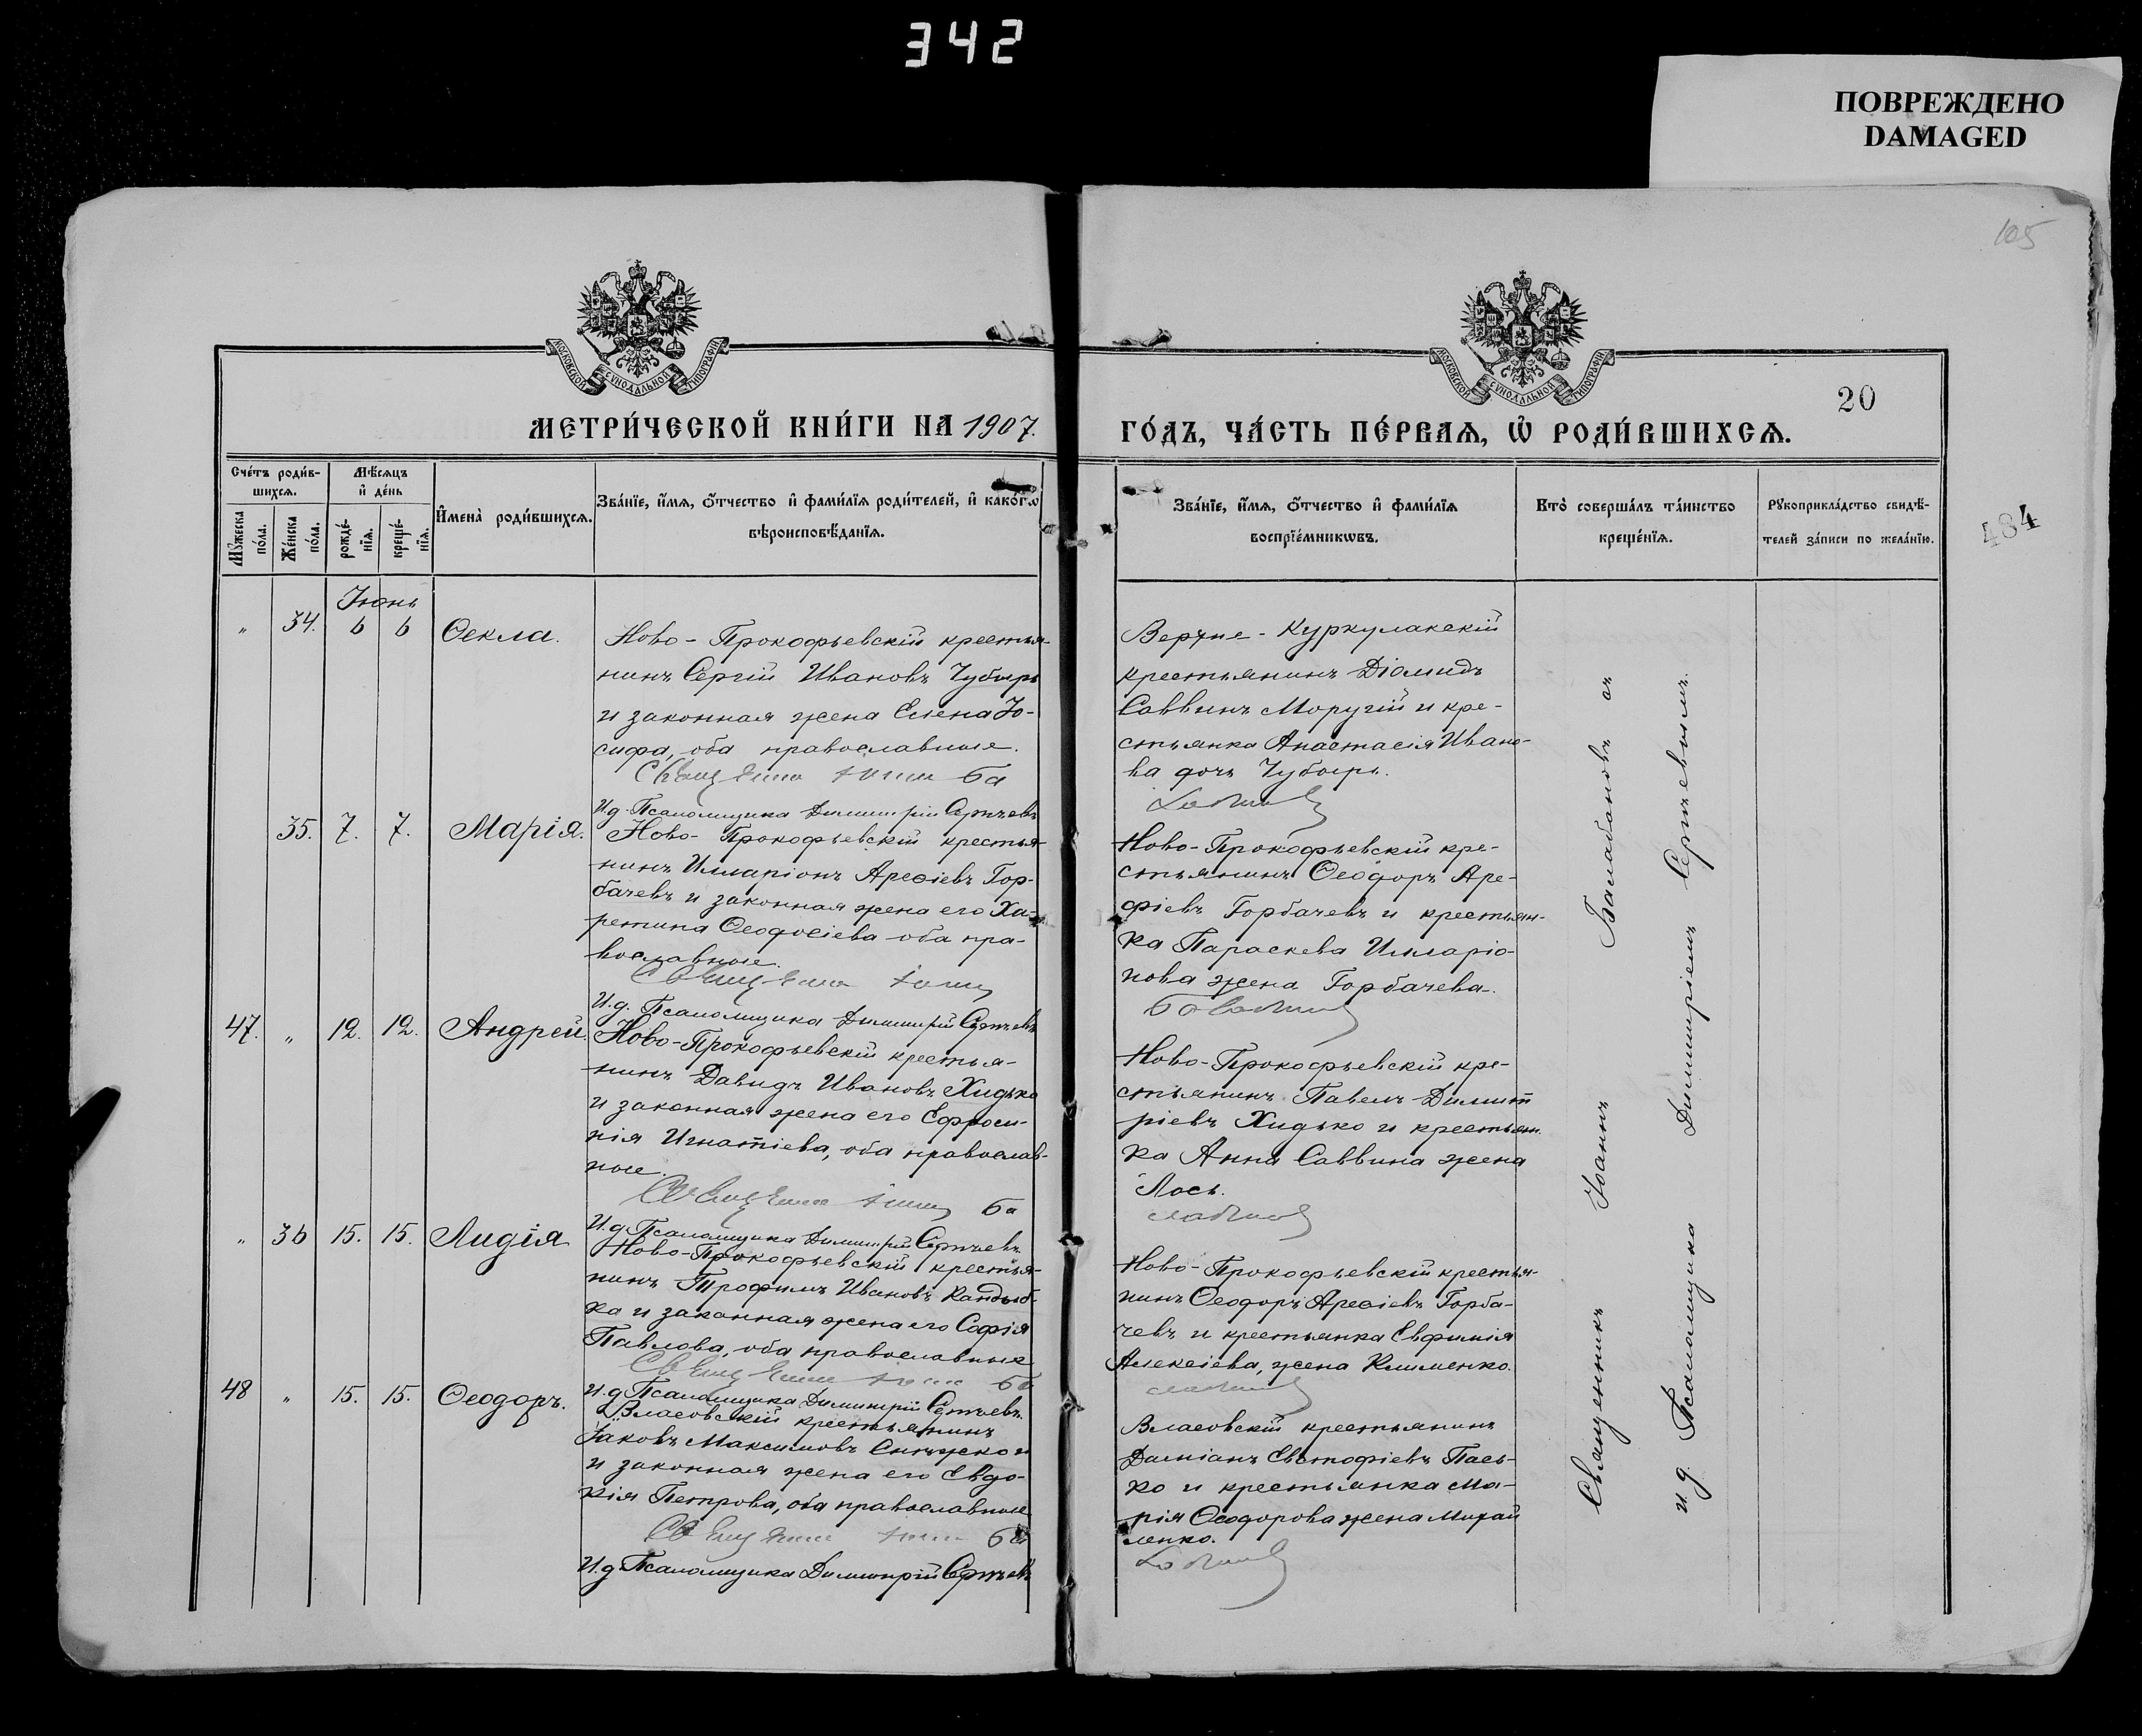 342
ПОВРЕЖДЕНО
DAMAGED
105
МОСКОВСКОЙ СѴНОДАЛЬНОЙ ТИПОГРАФІИ
МОСКОВСКОЙ СѴНОДАЛЬНОЙ ТИПОГРАФІИ
20
МЕТРИ́ЧЕСКОЙ КНИ́ГИ НА 1907.
ГО́ДЪ, ЧА́СТЬ ПЕ́РВАѦ, Ѡ҆ РОДИ́ВШИХСѦ.
484
Сче́тъ роди́в-
шихсѧ.
Мꙋ́жеска
по́ла.
Же́нска
по́ла.
Мѣ́сѧцъ
и҆ де́нь
рожде́-
нїѧ.
креще́-
нїѧ.
И҆мена̀ роди́вшихсѧ.
Зва́нїе, и҆́мѧ, ѻ҆́тчество и҆ фами́лїѧ роди́телей, и҆ како́гѡ
вѣроисповѣ́данїѧ.
Зва́нїе, и҆́мѧ, ѻ҆́тчество и҆ фами́лїѧ
воспрїе́мникѡвъ.
Кто̀ соверша́лъ та́инство
креще́нїѧ.
Рꙋкоприкла́дство свидѣ́-
телей за́писи по жела́нїю.
Іюнь
" 34. 6 6 Ѳекла.
Ново-Прокофьевскій крестья-
нинъ Сергій Ивановъ Чубырь
и законная жена Елена Іо-
сифа, оба православные.
И.д. Псаломщика Димитрій Сергѣевъ
Верхне-Куркулакскій
крестьянинъ Діомидъ
Саввинъ Моругій и кре-
стьянка Анастасія Ивано-
ва дочь Чубырь.
35. 7. 7. Марія.
Ново-Прокофьевскій крестья-
нинъ Илларіонъ Ареѳіевъ Гор-
бачевъ и законная жена его Ха-
ретина Ѳеодосіева оба пра-
вославные.
И.д. Псаломщика Димитрій Сергѣевъ
Ново-Прокофьевскій кре-
стьянинъ Ѳеодоръ Аре-
фіевъ Горбачевъ и крестьян-
ка Параскева Илларіо-
нова жена Горбачева.
47. " 12. 12. Андрей.
Ново-Прокофьевскій крестья-
нинъ Давидъ Ивановъ Хидько
и законная жена его Ефроси-
нія Игнатіева, оба православ-
ные.
И.д. Псаломщика Димитрій Сергѣевъ
Ново-Прокофьевскій кре-
стьянинъ Павелъ Димит
ріевъ Хидько и крестьян.
ка Анна Саввина жена
Лось.
" 36 15. 15. Лидія
Ново-Прокофьевскій крестья-
нинъ Трофимъ Ивановъ Кандыб-
ка и законная жена его Софія
Павлова, оба православные
И.д. Псаломщика Димитрій Сергѣевъ
Ново-Прокофьевскій крестья-
нинъ Ѳеодоръ Ареѳіевъ Горба-
чевъ и крестьянка Евфимія
Алексіева, жена Клименко.
48 " 15. 15. Ѳеодоръ.
Власовскій крестьянинъ
Іаковъ Максимовъ
и законная жена его Евдо-
кія Петрова, оба православные
И.д. Псаломщика Димитрій Сергѣевъ
Власовскій крестьянинъ
Даміанъ Евстафіевъ Пась-
ко и крестьянка Ма-
рія Ѳеодорова жена Михай
ленко.
Священникъ Іоаннъ Балабановъ съ
и д. Псаломщика Димитріемъ Сергѣевымъ.